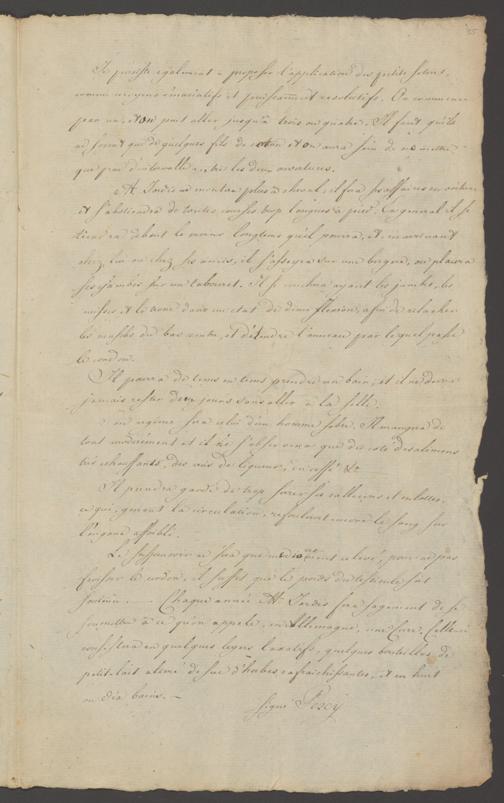 35
Je persiste également à proposer l'application des petits setons,
comme moyens émonctifs et puissamment resolutifs. On commencera
par un, et on peut aller jusqu'à trois ou quatre. Il faut qu'ils
ne soient que de quelques fils de coton et on aura soin de ne mettre
que peu d'intervalle entre les deux ouvertures.
Mr. Jordis ne montera plus à cheval, il fera ses affaires en voiture
et s'abstiendra de toutes courses trop longues à pied. En general il se
tiendra debout le moins longtems qu'il pourra, et, en arrivant
chez lui ou chez ses amis, il s'asseyra sur une bergere, ou placera
ses jambes sur un tabouret. Il se couchera ayant les jambes, les
cuisses et le tronc dans un etat de demi flexion, afin de relacher
les muscles du bas ventre, et détendre l'anneau par lequel passe
le cordon.
Il pourra de tems en tems prendre un bain, et il ne devra
jamais rester deux jours sans aller à la selle.
Son regime sera celui d'un homme sobre. Il mangera de
tout moderément et il ne s'observera que du coté des alimens
très echauffants, des vins de liqueur, du caffé &c
Il prendra garde de trop serrer ses calleçons et culottes,
ce qui, genent la circulation, refoulant encore le sang sur
l'organe affoibli.
Le suspensoir ne sera que mediocrement relevé, pour ne pas
froisser le cordon, il suffit que le poids du testicule soit
soutenu. — Chaque année Mr. Jordis fera sagement de se
soumettre à ce qu'on appele, en Allemagne, une Cure. Celle ci
consistera en quelques legers laxatifs, quelques bouteilles de
petit lait alteré de suc d'herbes rafraichissantes, et en huit
ou dix bains. —
signé Percy